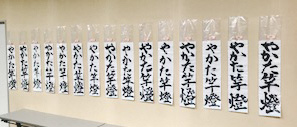 やかた竿燈
やかた竿燈
やかた竿燈
やかた竿燈
やかた竿燈
やかた竿燈
やかた竿燈
やかた竿燈
やかた竿燈
やかた竿燈
やかた竿燈
やかた竿燈
やかた竿燈
やかた竿燈